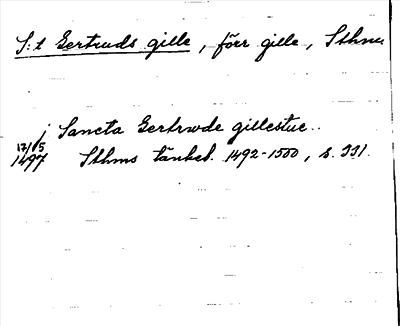 S:t Gertruds gille, förr gille, Sthm
j Sancta Gertrwde gillestue..
17/5
1497 Sthms tänkeb. 1492-1500, s. 331.